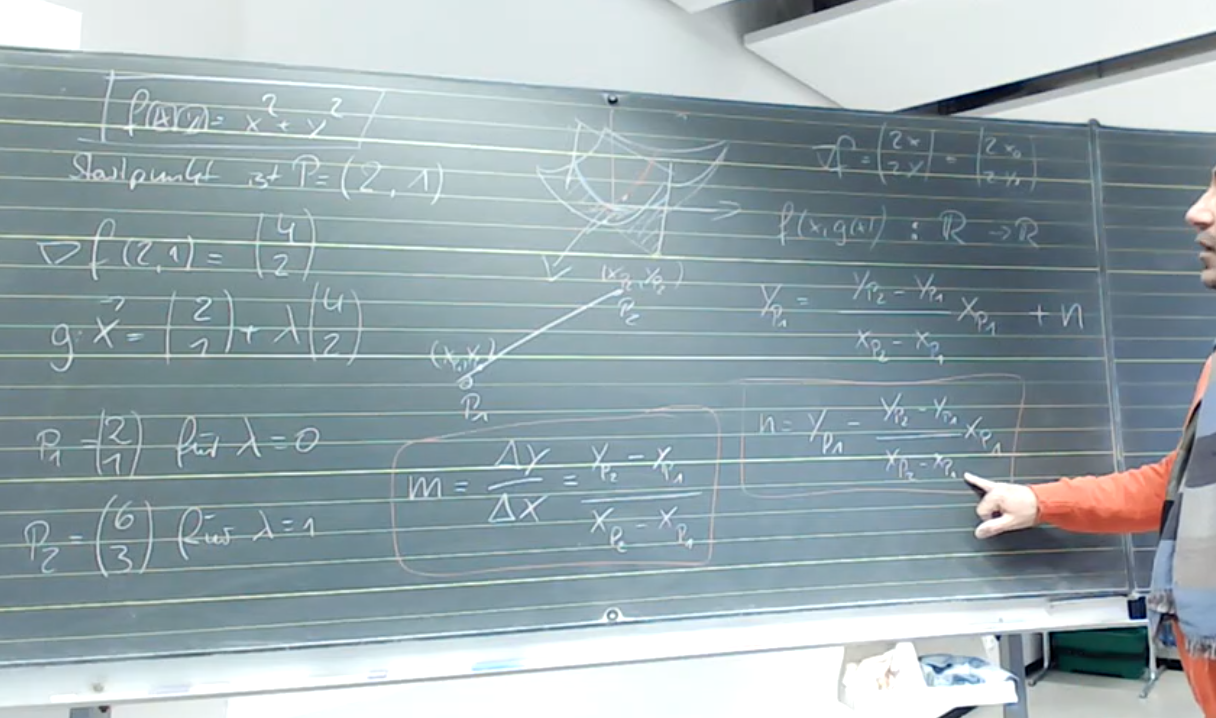 f(x,y) = x² + y²
Startpunkt ist P = (2, 1)
∇f(2,1) = (4 2)
g: x⃗ = (2 1) + λ(4 2)
P₁ = (2 1) für λ = 0
P₂ = (6 3) für λ = 1
(x_P₂, y_P₂)
P₂
P₁
m = Δy/Δx = (y_P₂ - x_P₁)/(x_P₂ - x_P₁)
∇f = (2x 2y) = (2x₀ 2y₀)
f(x, g(x)) : ℝ → ℝ
y_P₁ = (y_P₂ - y_P₁)/(x_P₂ - x_P₁) x_P₁ + n
n = y_P₁ - (y_P₂ - y_P₁)/(x_P₂ - x_P₁) x_P₁